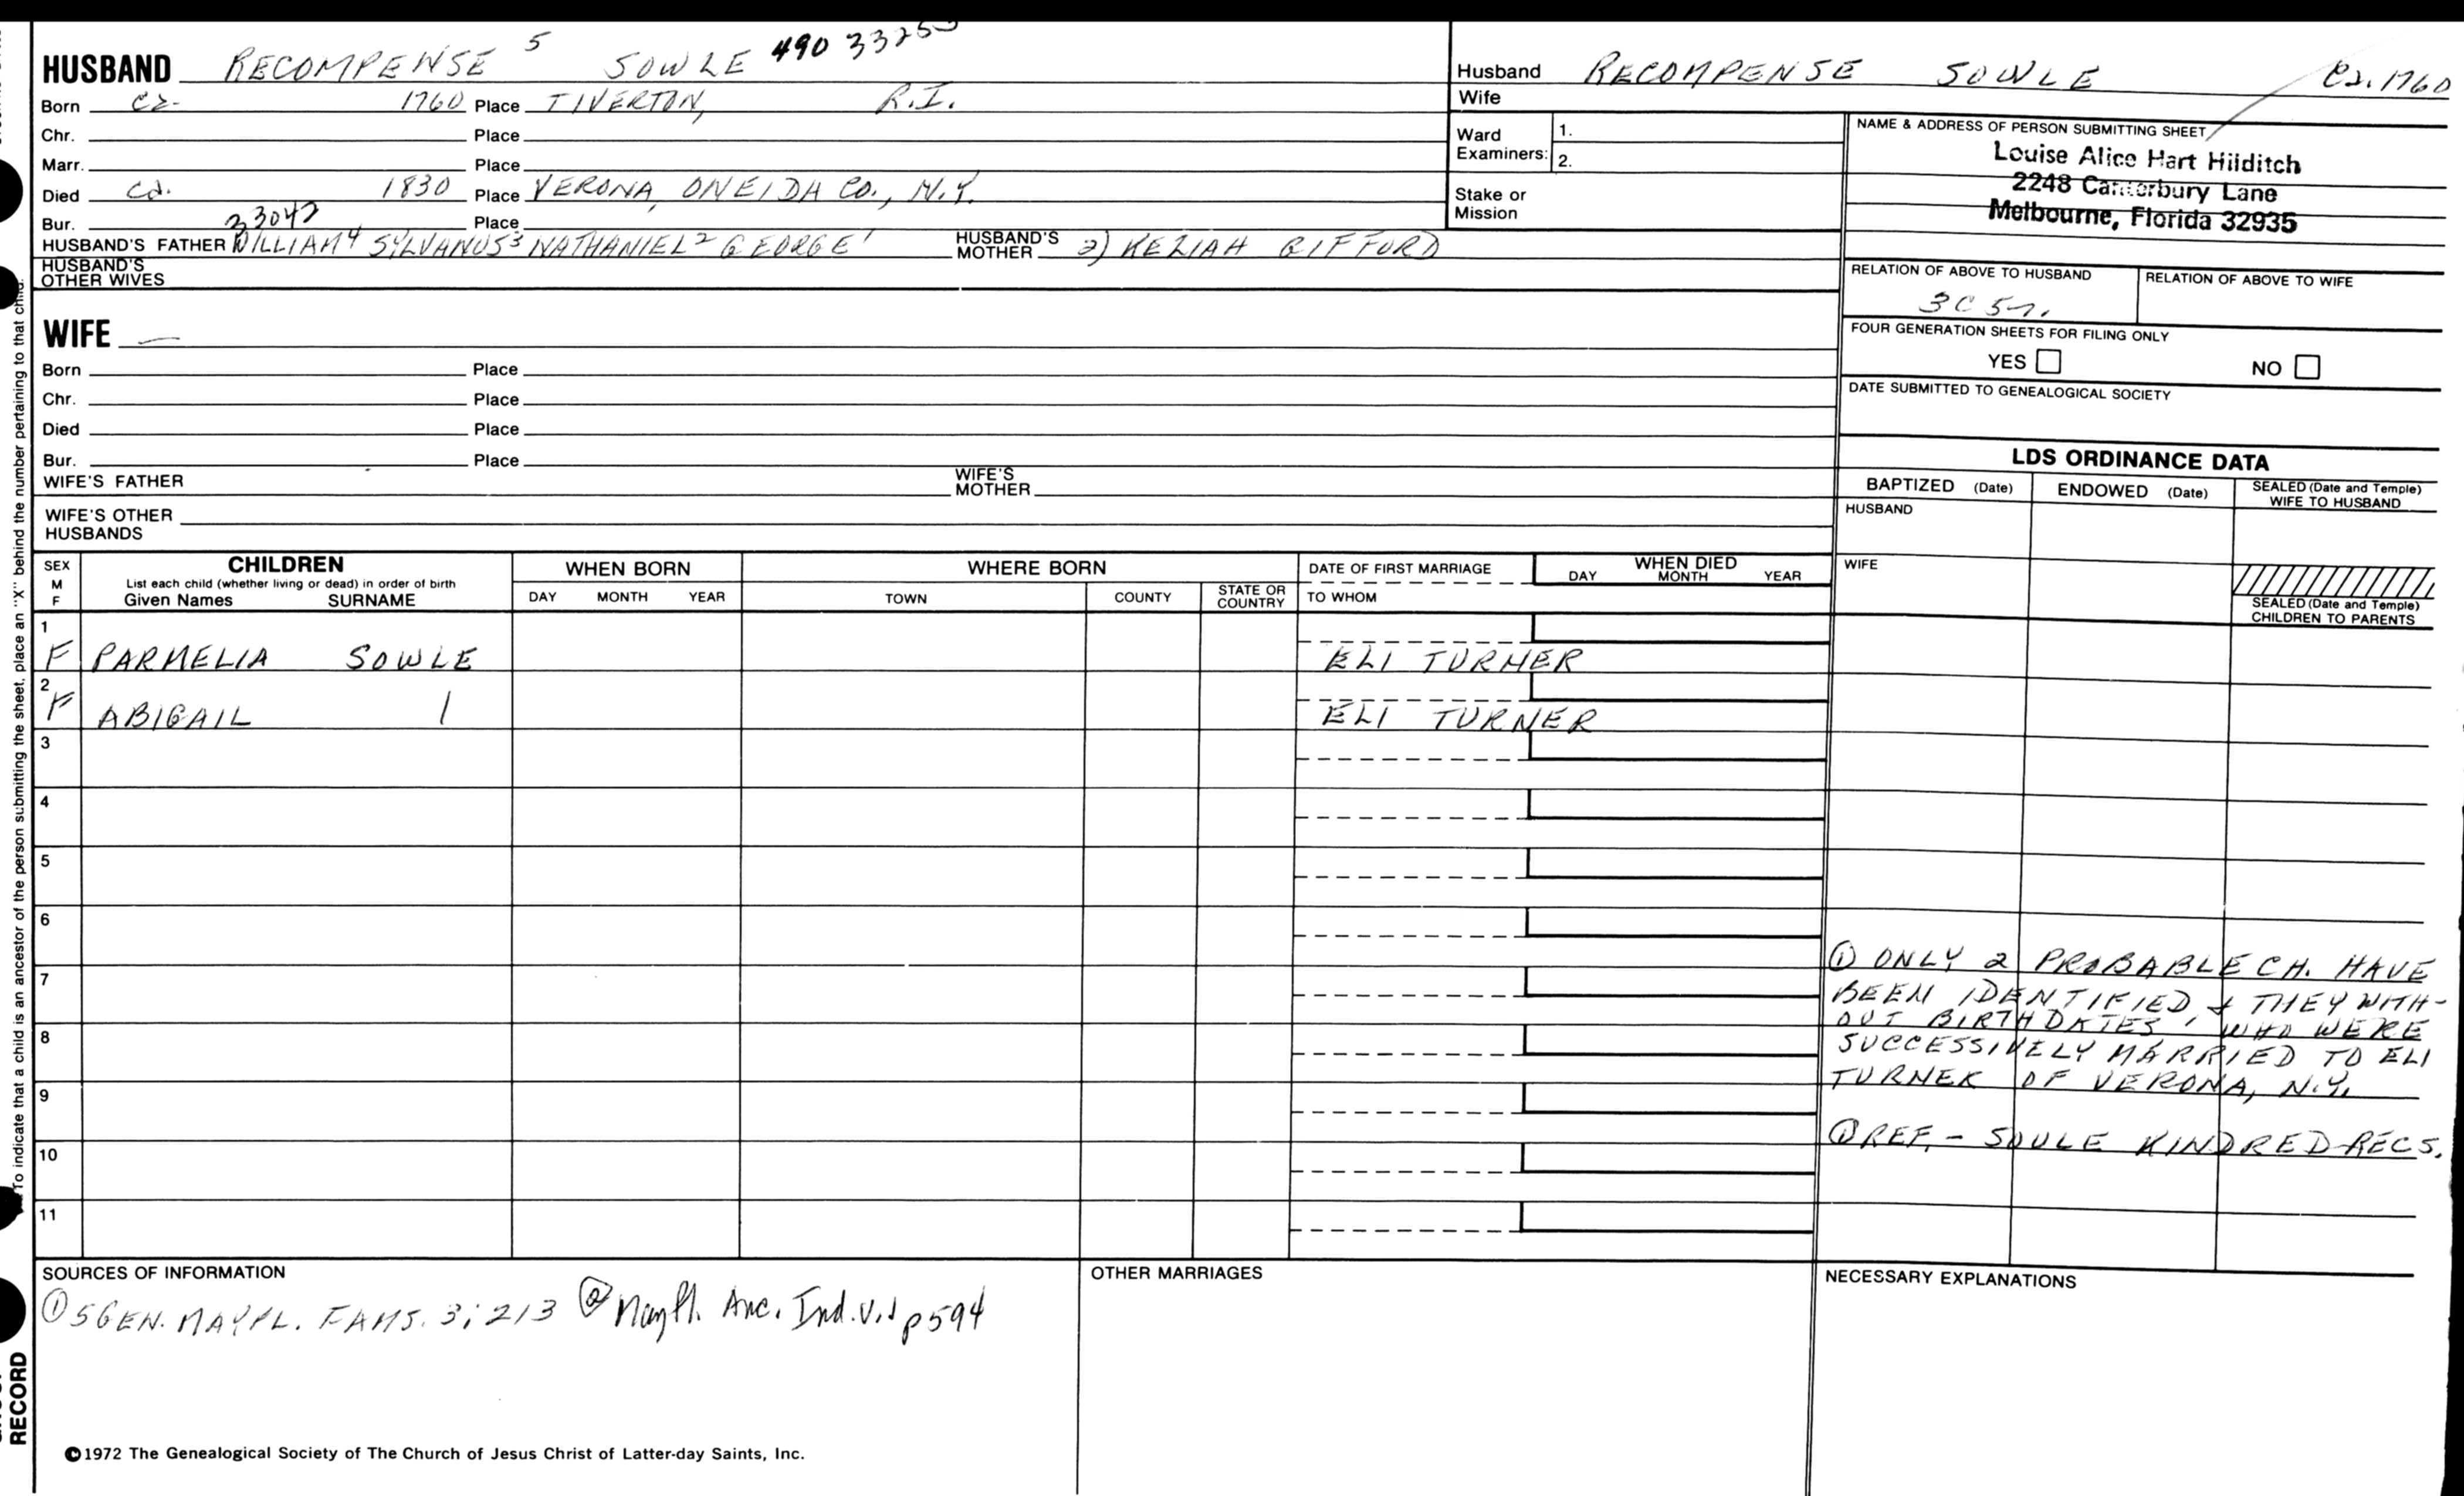 HUSBAND RECOMPENSE 5 SOWLE 490
Husband RECOMPENSE SOWLE Ca. 1760
Born ca. 1760 Place TIVERTON, R.I.
Wife
Chr. Place
Marr. Place
Died ca. 1830 Place VERONA, ONEIDA CO., N.Y.
Bur. 33042 Place
HUSBAND'S FATHER WILLIAM4 SYLVANUS3 NATHANIEL2 GEORGE1 HUSBAND'S MOTHER 2) KEZIAH GIFFORD
HUSBAND'S OTHER WIVES
Ward Examiners: 1.
2.
Stake or Mission
NAME & ADDRESS OF PERSON SUBMITTING SHEET
Louise Alice Hart Hilditch
2248 Canterbury Lane
Melbourne, Florida 32935
RELATION OF ABOVE TO HUSBAND RELATION OF ABOVE TO WIFE
3C 5r.
FOUR GENERATION SHEETS FOR FILING ONLY
YES NO
DATE SUBMITTED TO GENEALOGICAL SOCIETY
WIFE —
Born Place
Chr. Place
Died Place
Bur. Place
WIFE'S FATHER WIFE'S MOTHER
WIFE'S OTHER HUSBANDS
LDS ORDINANCE DATA
BAPTIZED (Date) ENDOWED (Date) SEALED (Date and Temple) WIFE TO HUSBAND
HUSBAND
WIFE
SEALED (Date and Temple) CHILDREN TO PARENTS
SEX M F CHILDREN WHEN BORN WHERE BORN DATE OF FIRST MARRIAGE WHEN DIED
List each child (whether living or dead) in order of birth
Given Names SURNAME DAY MONTH YEAR TOWN COUNTY STATE OR COUNTRY TO WHOM DAY MONTH YEAR
1
F PARMELIA SOWLE ELI TURNER
2
F ABIGAIL ELI TURNER
3
4
5
6
7
8
9
10
11
① ONLY 2 PROBABLE CH. HAVE
BEEN IDENTIFIED & THEY WITH-
OUT BIRTH DATES, WHO WERE
SUCCESSIVELY MARRIED TO ELI
TURNER OF VERONA, N.Y.
① REF. - SOULE KINDRED RECS.
SOURCES OF INFORMATION
① 5GEN. MAYFL. FAMS. 3:213 ② Mayfl. Anc. Ind. v.1 p594
OTHER MARRIAGES
NECESSARY EXPLANATIONS
©1972 The Genealogical Society of The Church of Jesus Christ of Latter-day Saints, Inc.
To indicate that a child is an ancestor of the person submitting the sheet, place an "X" behind the number pertaining to that child.
RECORD